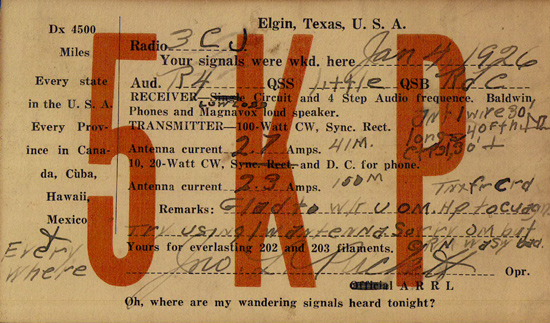 Elgin, Texas, U. S. A.
Dx 4500
Miles
Every state
in the U. S. A.
Every Prov-
ince in Cana-
da, Cuba,
Hawaii,
Mexico
Every
where
5KP
Radio 3CJ
Your signals were wkd. here Jan 4 1926
Aud. R4 QSS little QSB RdC
RECEIVER—Single Circuit and 4 Step Audio frequence. Baldwin,
Phones and Magnavox loud speaker.
TRANSMITTER—100-Watt CW, Sync. Rect.
Antenna current 2.7 Amps. 41M.
10, 20-Watt CW, Sync. Rect. and D. C. for phone.
Antenna current 2.3 Amps.
Tnx fr crd
Remarks: Glad to wk u OM. Hp to cu agn
Try using antenna. Sorry OM but
QRM was bad.
Yours for everlasting 202 and 203 filaments.
Jno. L. Opr.
Official A R R L
Oh, where are my wandering signals heard tonight?